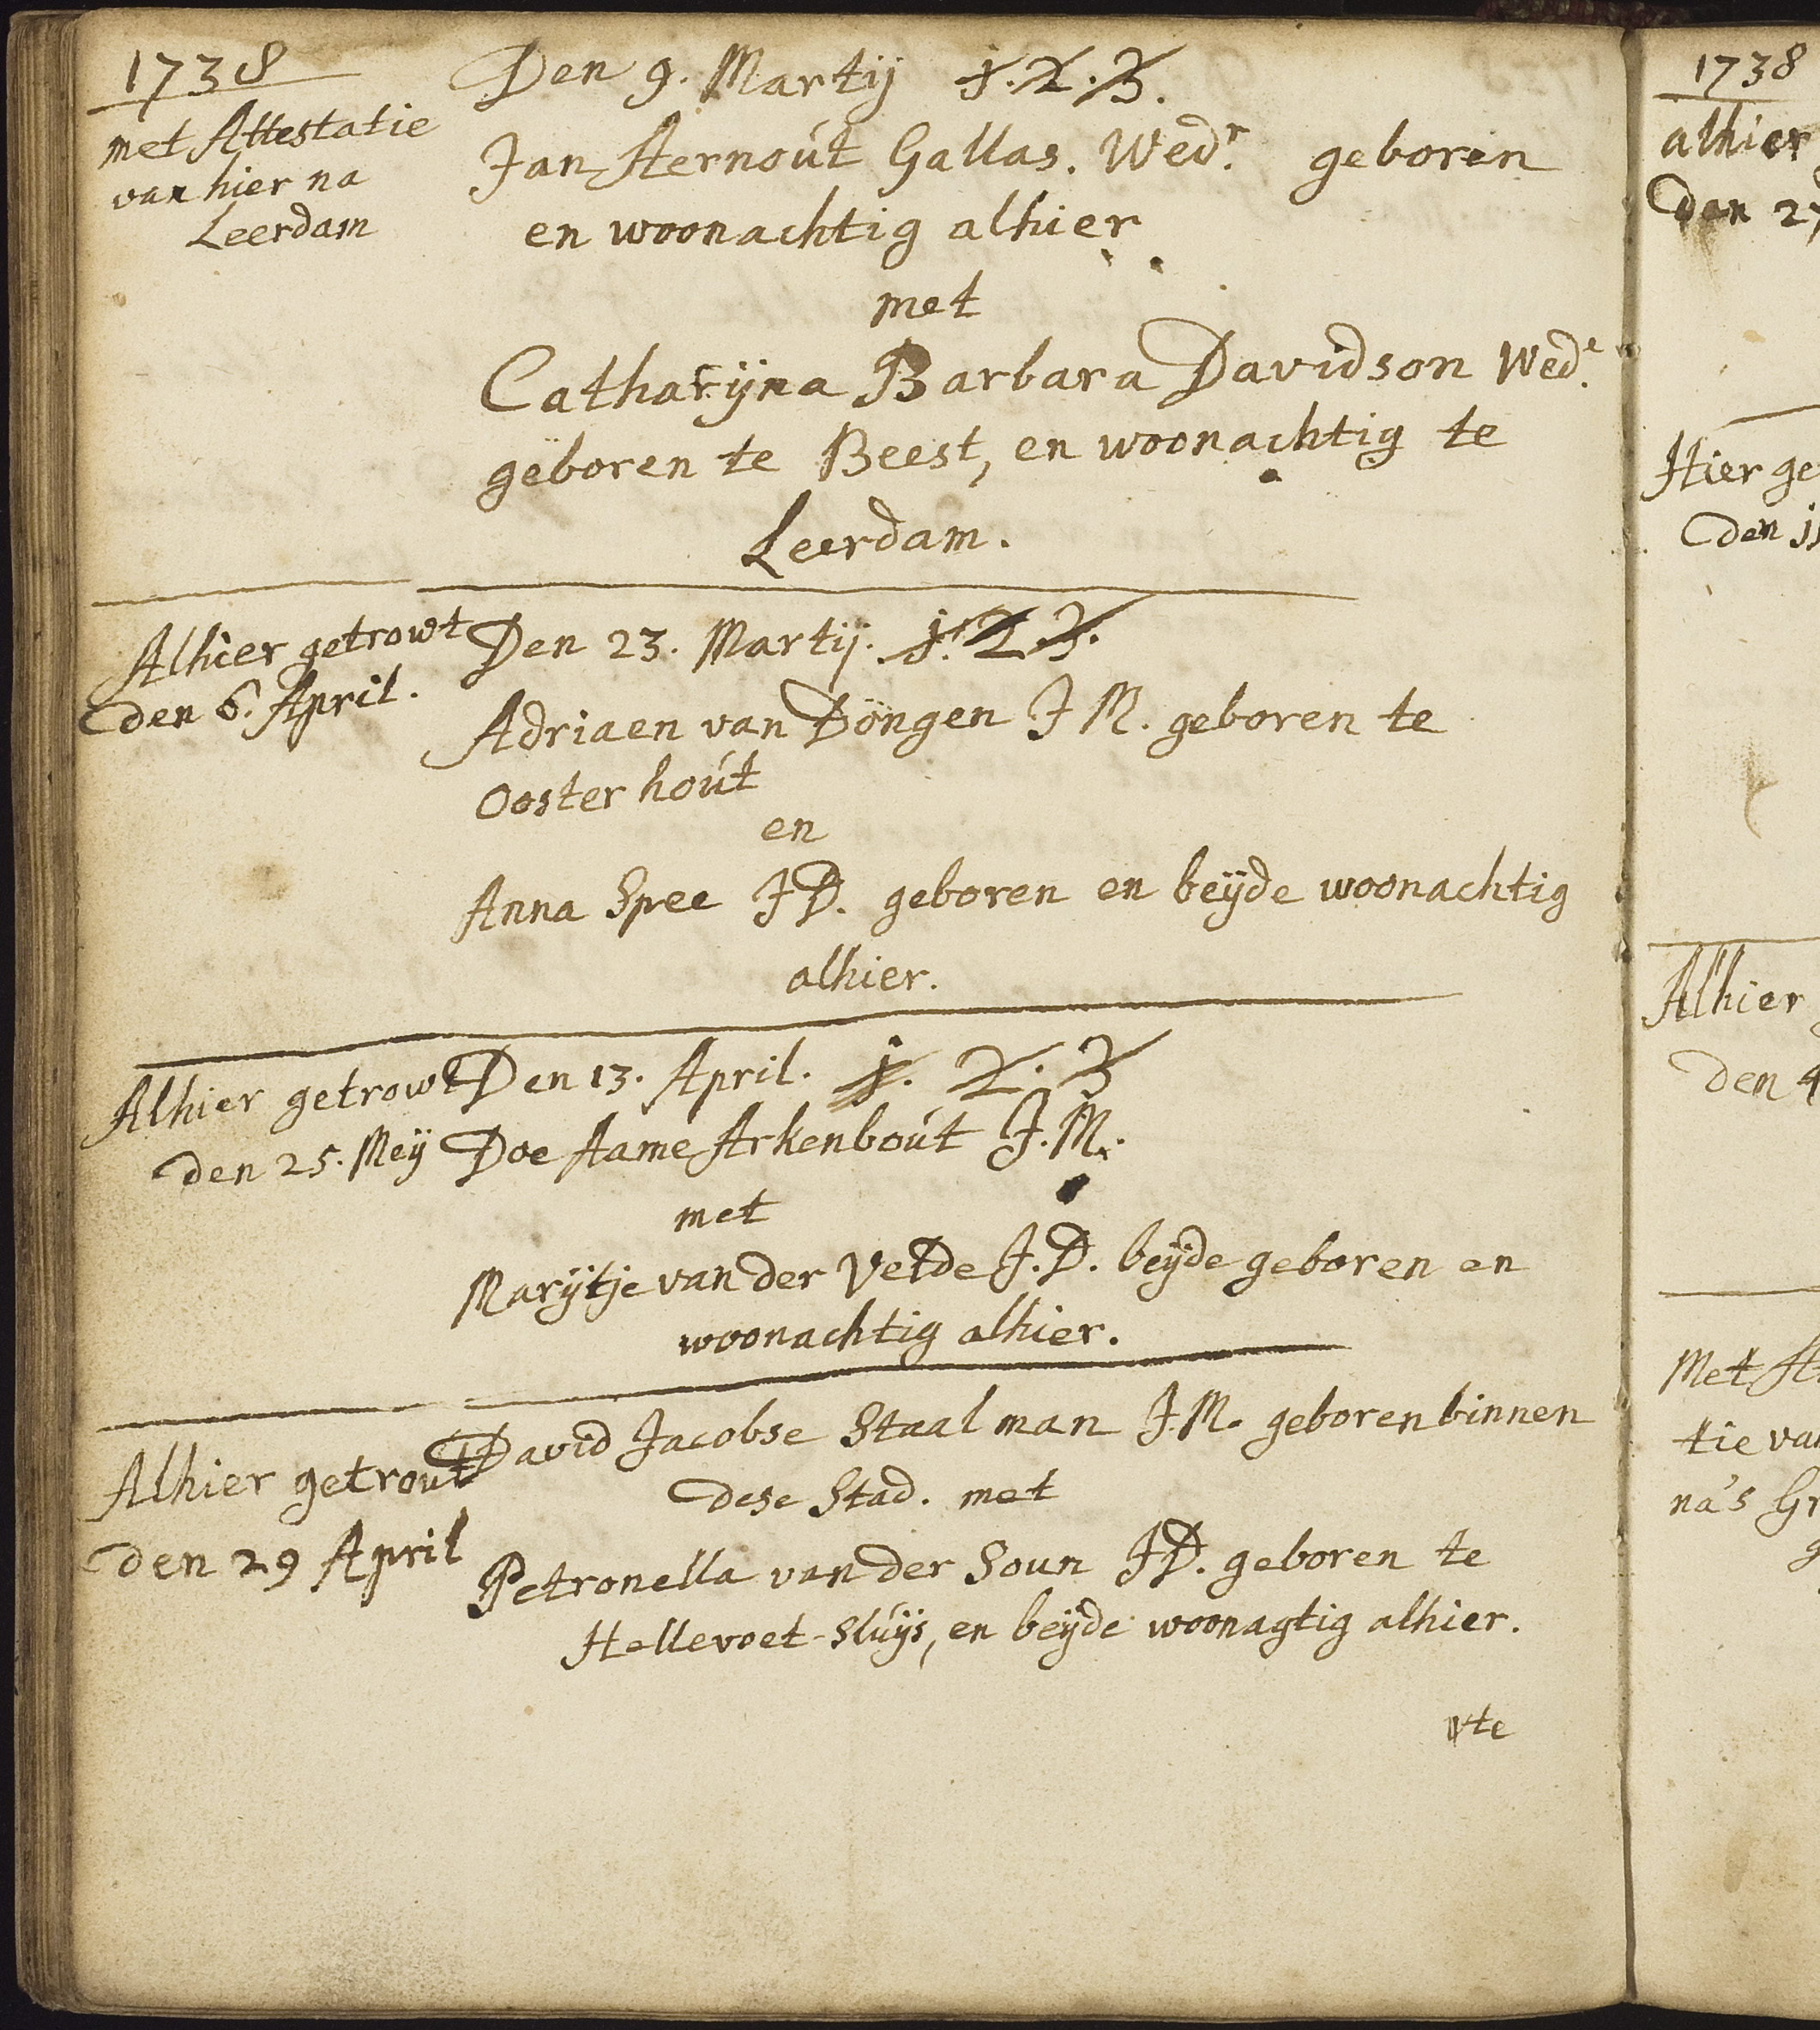 1738
met Attestatie
van hier na
Leerdam
Den 9. Martij 1. 2. 3.
Jan Aernoút Gallas. Wedr. geboren
en woonachtig alhier
met
Catharijna Barbara Davidson Wede.
geboren te Beest, en woonachtig te
Leerdam.
Alhier getrowt
den 6. April.
Den 23. Martij. 1. 2 3.
Adriaen van Dongen J M. geboren te
Oosterhoút
en
Anna Spee JD. geboren en beijde woonachtig
alhier.
Alhier getrowt
den 25. Meij
Den 13. April. 1. 2. 3
Doe Aame Arkenboút J. M.
met
Marijtje van der Velde J. D. beijde geboren en
woonachtig alhier.
Alhier getrout
den 29 April
David Jacobse Staalman J. M. geboren binnen
dese Stad. met
Petronella van der Soun JD. geboren te
Hellevoet-Slúijs, en beijde woonagtig alhier.
te
1738
alhier
den 27
Hier ge
den
Alhier
den 4
Met At
tie va
na's Gr